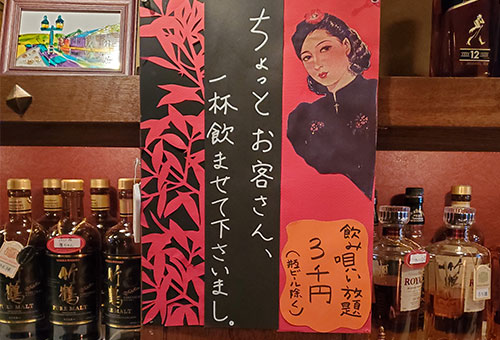 ちょっとお客さん、
一杯飲ませて下さいまし。
飲み唄い放題
3千円
(瓶ビール除く)
12
竹鶴
PURE MALT
竹鶴
PURE MALT
竹鶴
ROYAL